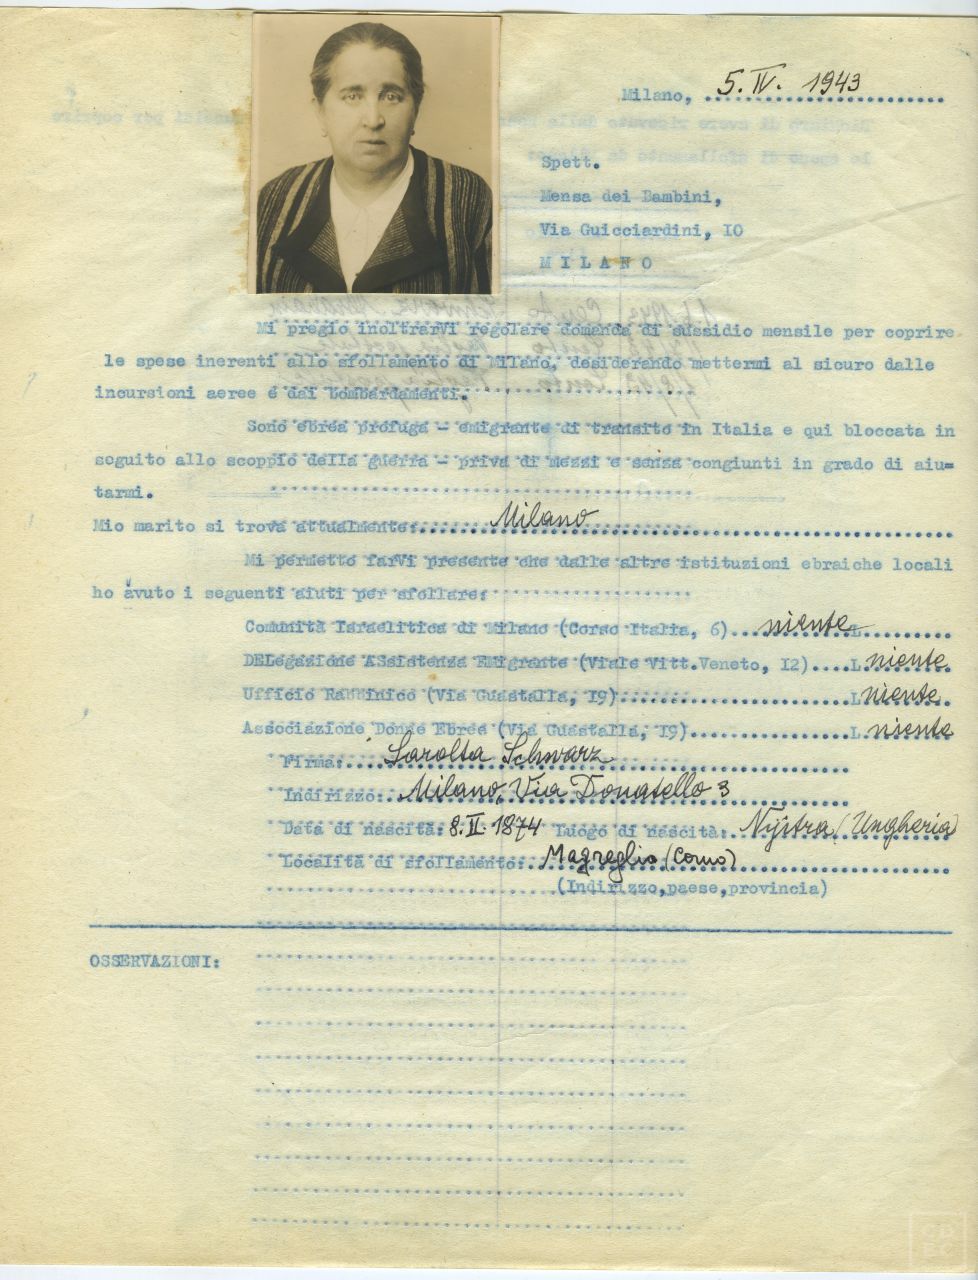 Milano, 5. IV. 1943
Spett.
Mensa dei Bambini,
Via Guicciardini, 10
MILANO
Mi pregio inoltrarVi regolare domanda di sussidio mensile per coprire
le spese inerenti allo sfollamento di Milano, desiderando mettermi al sicuro dalle
incursioni aeree e dai bombardamenti.
Sono ebrea profuga - emigrante di transito in Italia e qui bloccata in
seguito allo scoppio della guerra - priva di mezzi e senza congiunti in grado di aiu=
tarmi.
Mio marito si trova attualmente: Milano
Mi permetto farVi presente che dalle altre istituzioni ebraiche locali
ho avuto i seguenti aiuti per sfollare:
Comunità Israelitica di Milano (Corso Italia, 6)....niente L..........
DELegazione ASsistenza EMigrante (Viale Vitt.Veneto, 12)....L niente
Ufficio Rabbinico (Via Guastalla, 19)..........L niente
Associazione Donne Ebree (Via Guastalla, 19)..........L. niente
Firma: Sarolta Schwarz
Indirizzo: Milano, Via Donatello 3
Data di nascita: 8. II. 1874 Luogo di nascita: Nyitra (Ungheria)
Località di sfollamento: Magreglio (Como)
(Indirizzo,paese,provincia)
OSSERVAZIONI:
CD
EC